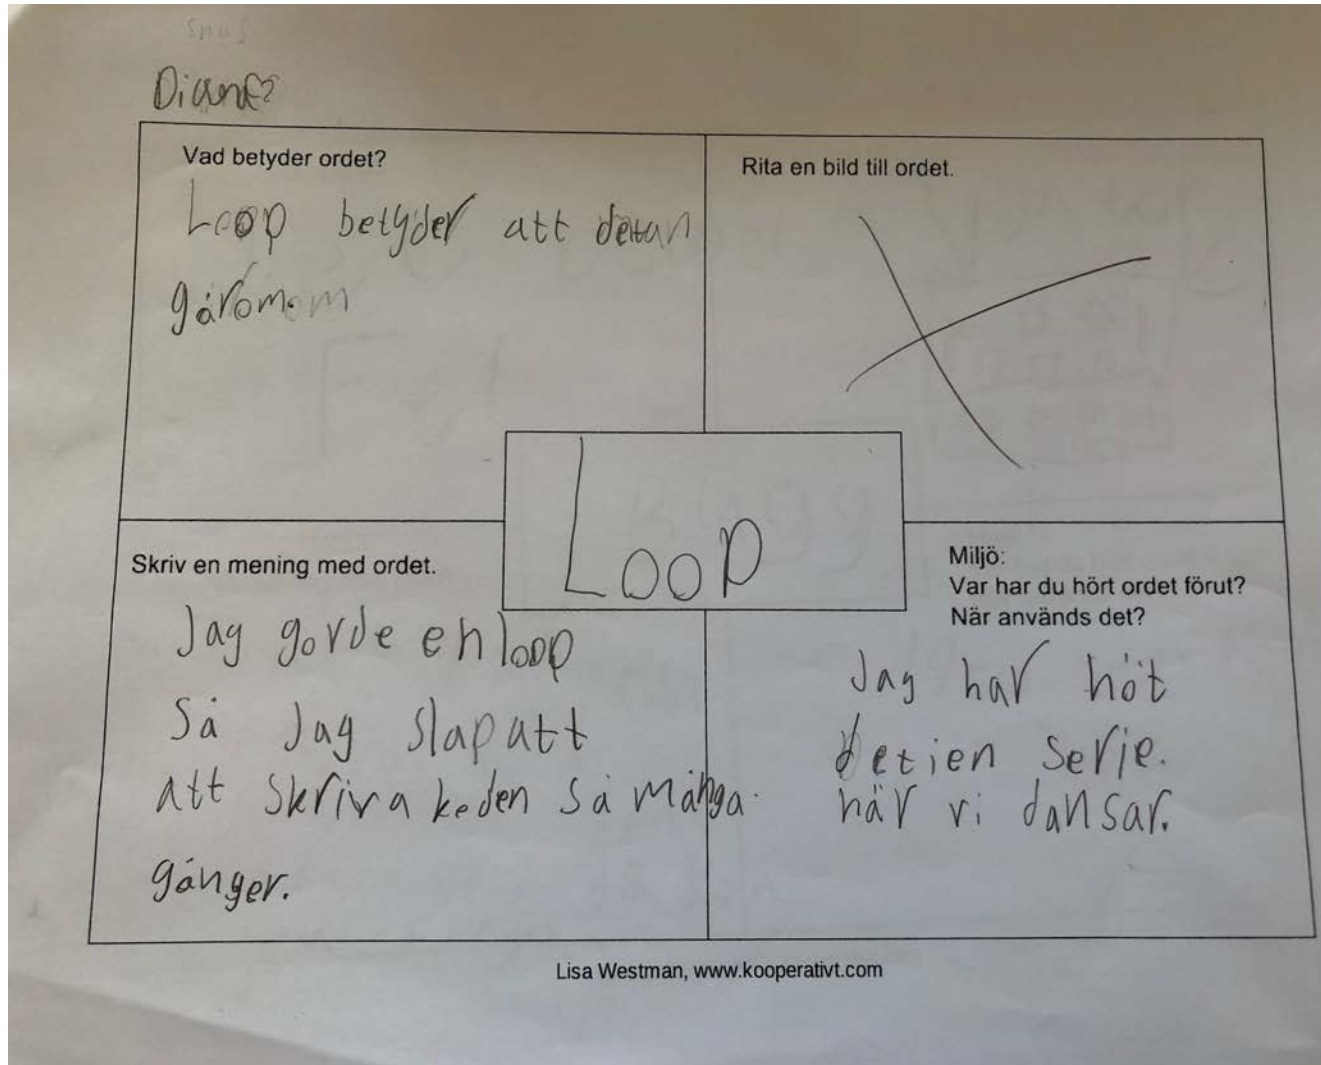 Vad betyder ordet?
Loop betyder att
gåromom
Rita en bild till ordet.
Loop
Skriv en mening med ordet.
Jag gorde en loop
så Jag slap att
att skriva koden så många
gånger.
Miljö:
Var har du hört ordet förut?
När används det?
Jag har höt
det i en serje.
när vi dansar.
Lisa Westman, www.kooperativt.com